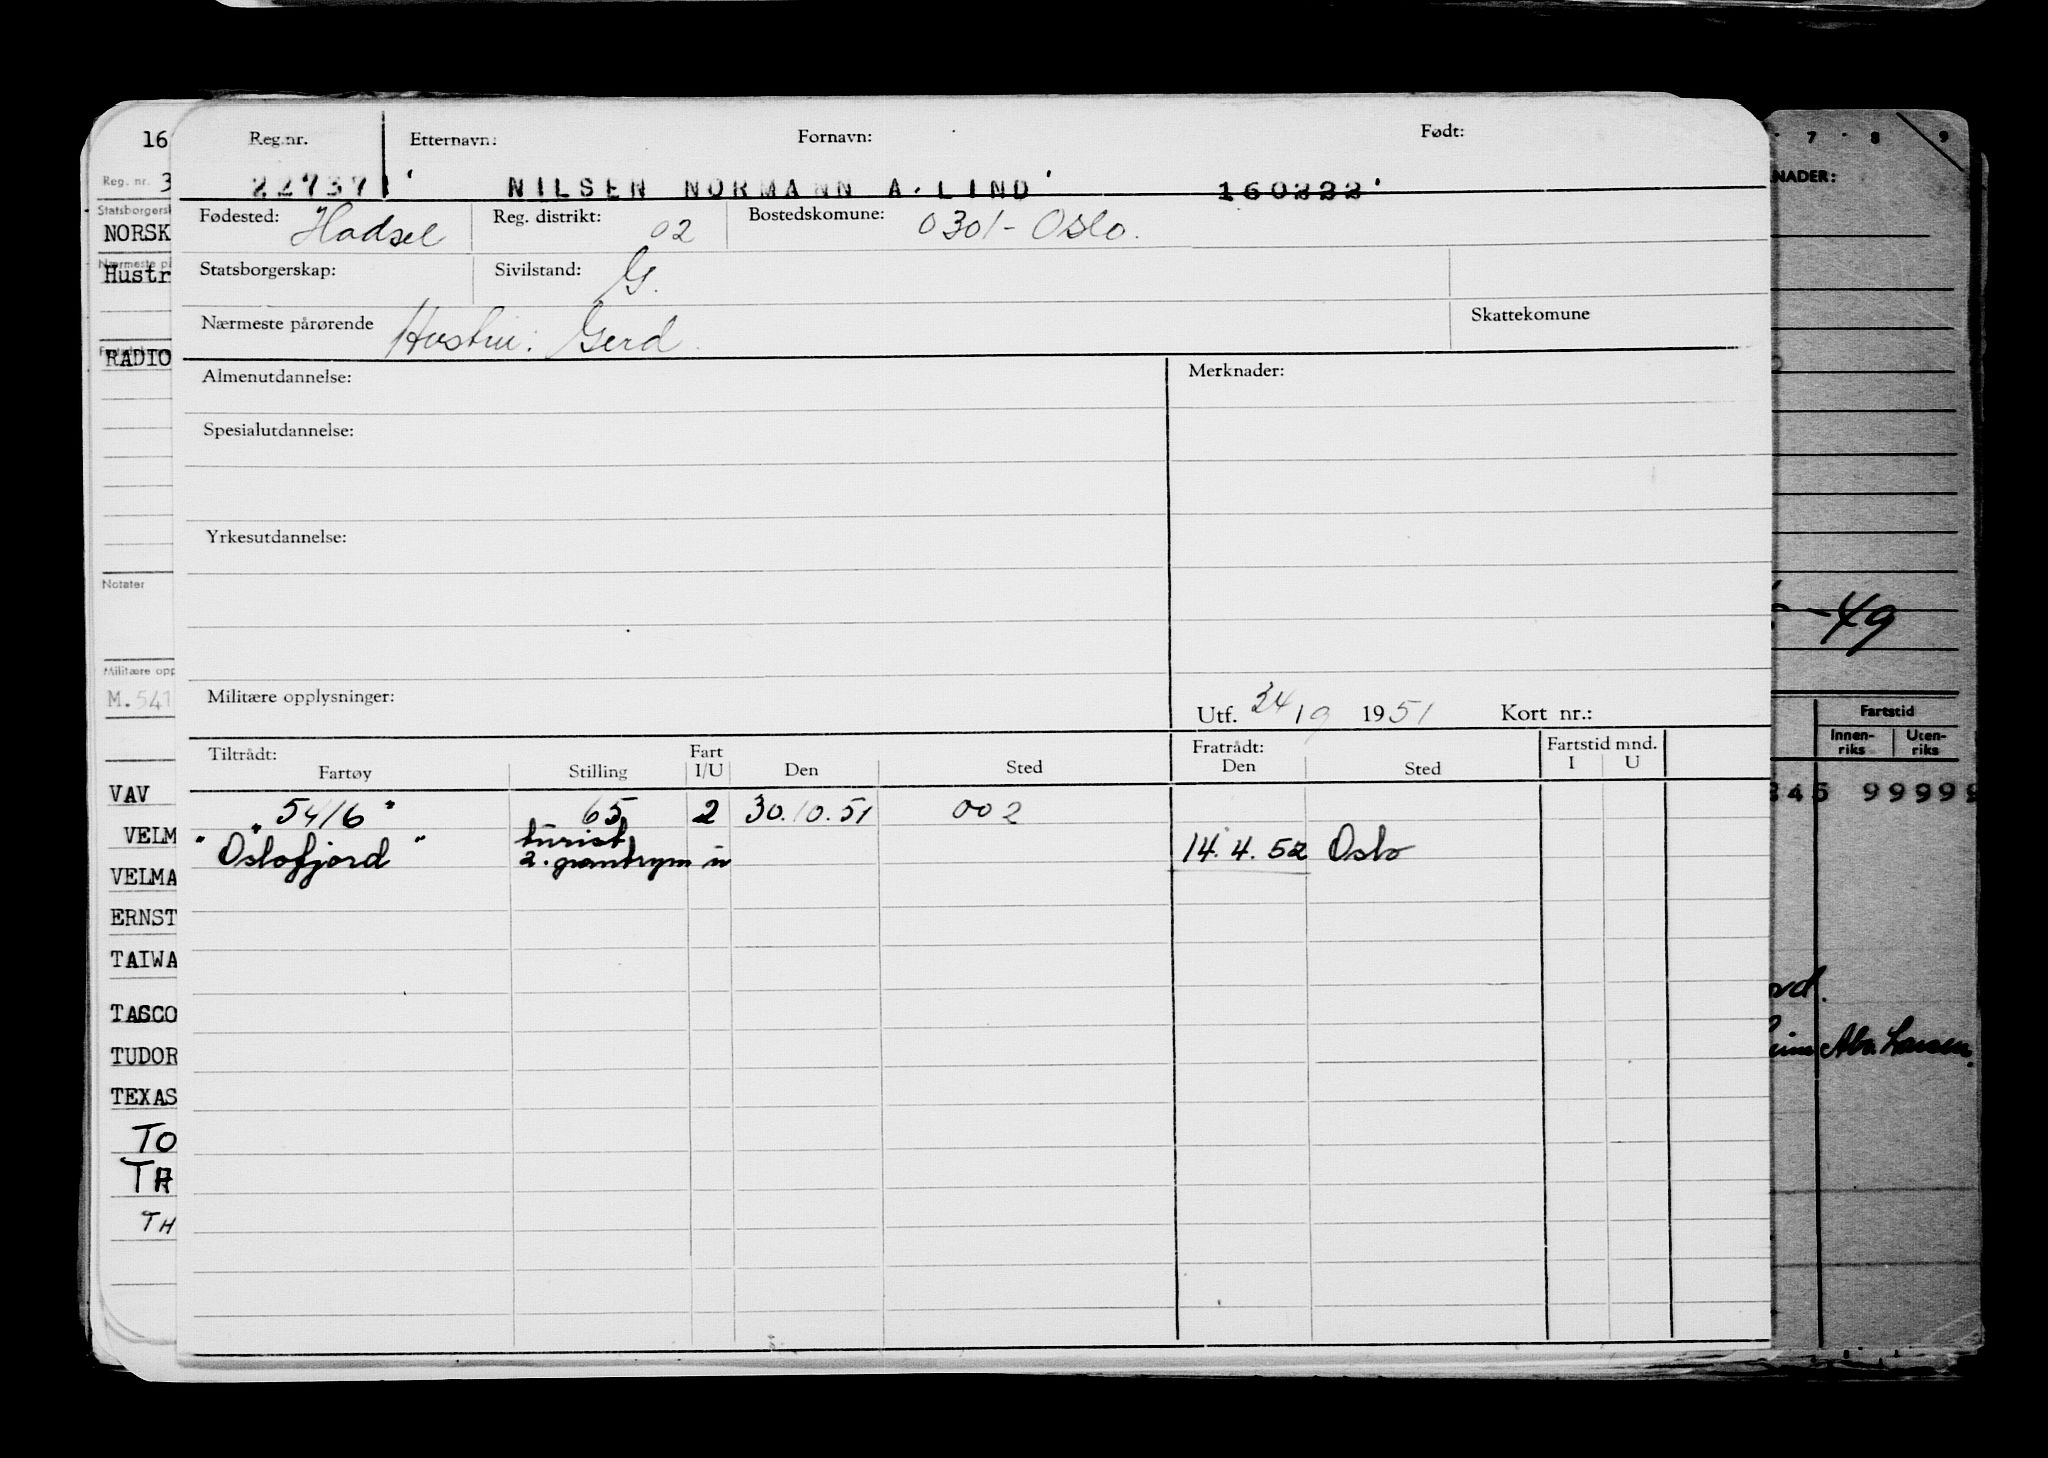 Reg.nr. Etternavn: Fornavn: Født:
227371 NILSEN NORMANN A. LIND 160222
Fødested: Hadsel Reg. distrikt: 02 Bostedskomune: 0301 - Oslo.
Statsborgerskap: Sivilstand: G.
Nærmeste pårørende Hustru: Gerd. Skattekomune
Almenutdannelse: Merknader:
Spesialutdannelse:
Yrkesutdannelse:
Militære opplysninger:
Utf. 24/9 1951 Kort nr.:
Tiltrådt: Fart Fratrådt: Fartstid mnd.
Fartøy Stilling I/U Den Sted Den Sted I U
"5416" 65 2 30.10.51 002
turist
"Oslofjord" 2. u 14.4.52 Oslo
16
Reg. nr. 3
Statsborgersk
NORSK
Nærmeste på
Hustr
RADIO
Notater
Militære opp
M.541
VAV
VELM
VELMA
ERNST
TAIWA
TASCO
TUDOR
TEXAS
TO
TA
TH
7 8 9
NADER:
-49
Fartstid
Innen-
riks
Uten-
riks
345 99999
ord.
eim